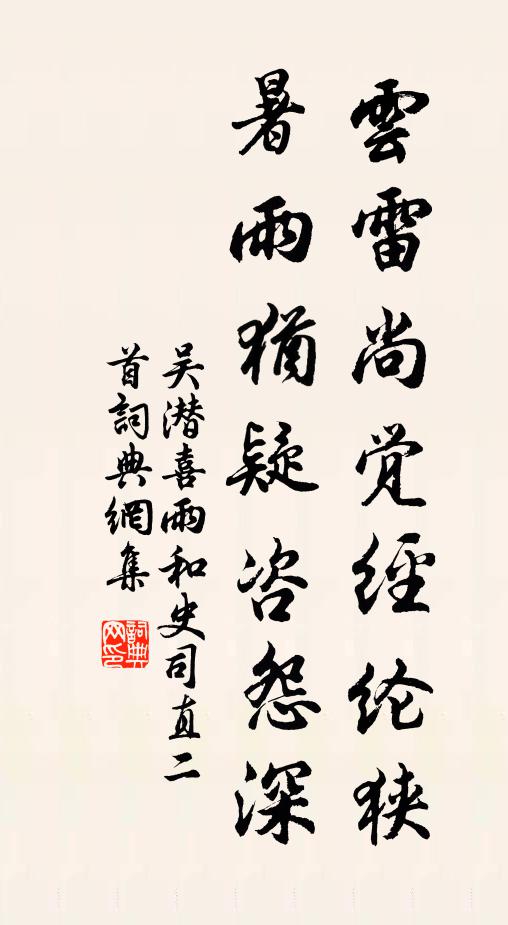 雲雷尚觉經纶狭
暑雨猶疑咨怨深
吴潜喜雨和史司直二
首詞典網集
詞典网印